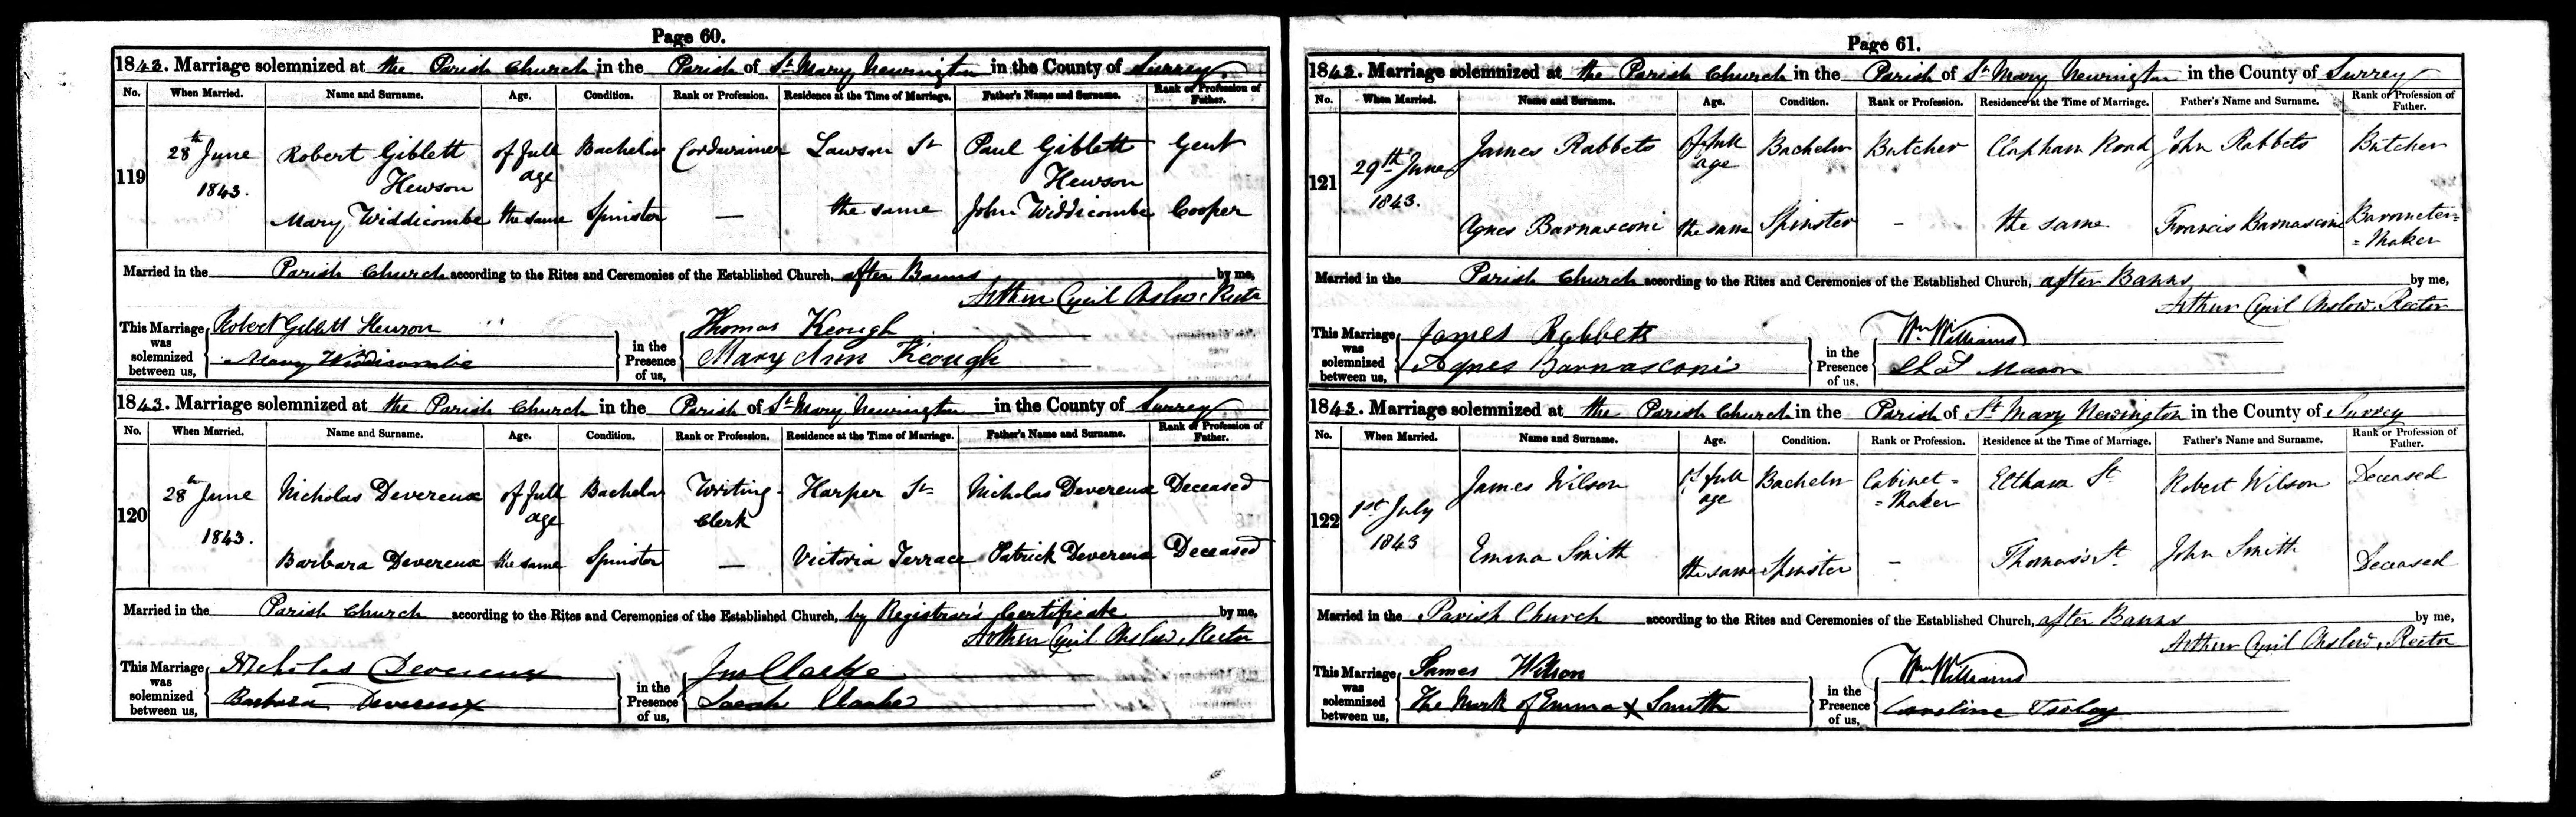 Page 60.
1843. Marriage solemnized at the Parish Church in the Parish of St Mary Newington in the County of Surrey
No. When Married. Name and Surname. Age. Condition. Rank or Profession. Residence at the Time of Marriage. Father's Name and Surname. Rank or Profession of Father.
119 28th June 1843. Robert Giblett Hewson of full age Bachelor Cordwainer Lawson St Paul Giblett Hewson Gent
Mary Widdicombe the same Spinster — the same John Widdicombe Cooper
Married in the Parish Church according to the Rites and Ceremonies of the Established Church, after Banns by me,
Arthur Cyril Onslow, Rector
This Marriage was solemnized between us, Robert Giblett Hewson
Mary Widdicombe
in the Presence of us, Thomas Keough
Mary Ann Keough
1843. Marriage solemnized at the Parish Church in the Parish of St Mary Newington in the County of Surrey
No. When Married. Name and Surname. Age. Condition. Rank or Profession. Residence at the Time of Marriage. Father's Name and Surname. Rank or Profession of Father.
120 28th June 1843. Nicholas Devereux of full age Bachelor Writing-Clerk Harper St Nicholas Devereux Deceased
Barbara Devereux the same Spinster — Victoria Terrace Patrick Devereux Deceased
Married in the Parish Church according to the Rites and Ceremonies of the Established Church, by Registrar's Certificate by me,
Arthur Cyril Onslow, Rector
This Marriage was solemnized between us, Nicholas Devereux
Barbara Devereux
in the Presence of us, Jno Clarke
Sarah Clarke
Page 61.
1843. Marriage solemnized at the Parish Church in the Parish of St Mary Newington in the County of Surrey
No. When Married. Name and Surname. Age. Condition. Rank or Profession. Residence at the Time of Marriage. Father's Name and Surname. Rank or Profession of Father.
121 29th June 1843. James Rabbets Of full age Bachelor Butcher Clapham Road John Rabbets Butcher
Agnes Barnasconi the same Spinster - the same Francis Barnasconi Barometer=
=Maker
Married in the Parish Church according to the Rites and Ceremonies of the Established Church, after Banns by me,
Arthur Cyril Onslow, Rector
This Marriage was solemnized between us, James Rabbets
Agnes Barnasconi
in the Presence of us, Wm Williams
Mason
1843. Marriage solemnized at the Parish Church in the Parish of St Mary Newington in the County of Surrey
No. When Married. Name and Surname. Age. Condition. Rank or Profession. Residence at the Time of Marriage. Father's Name and Surname. Rank or Profession of Father.
122 1st July 1843 James Wilson Of full age Bachelor Cabinet=
=Maker Eltham St Robert Wilson Deceased
Emma Smith the same Spinster - Thomas's St John Smith Deceased
Married in the Parish Church according to the Rites and Ceremonies of the Established Church, after Banns by me,
Arthur Cyril Onslow, Rector
This Marriage was solemnized between us, James Wilson
The Mark of Emma X Smith
in the Presence of us, Wm Williams
Caroline